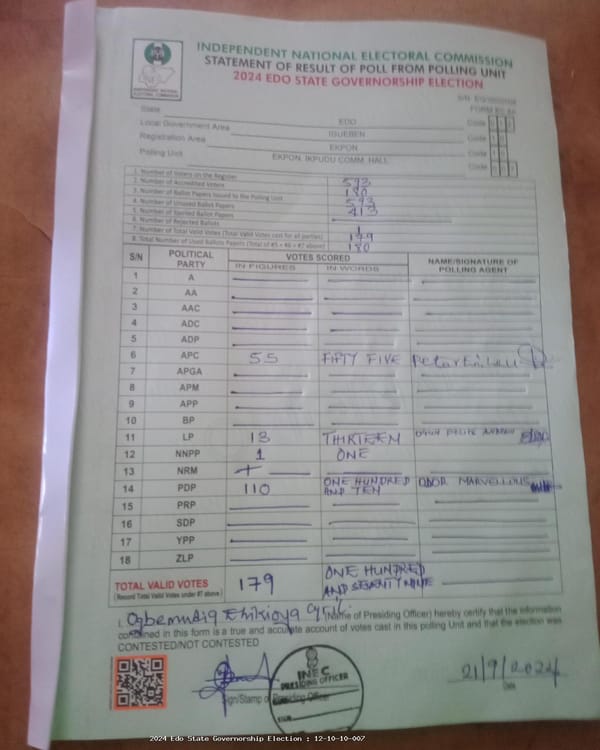 INDEPENDENT NATIONAL ELECTORAL COMMISSION
STATEMENT OF RESULT OF POLL FROM POLLING UNIT
2024 EDO STATE GOVERNORSHIP ELECTION
State EDO Code
Local Government Area IGUEBEN Code
Registration Area EKPON Code
Polling Unit EKPON, IKPUDU COMM. HALL Code
1. Number of Voters on the Register 593
2. Number of Accredited Voters 180
3. Number of Ballot Papers Issued to the Polling Unit 593
4. Number of Unused Ballot Papers 413
5. Number of Spoiled Ballot Papers
6. Number of Rejected Ballots 1
7. Number of Total Valid Votes (Total Valid Votes cast for all parties) 179
8. Total Number of Used Ballots Papers (Total of #5 + #6 + #7 above) 180
S/N POLITICAL PARTY VOTES SCORED NAME/SIGNATURE OF POLLING AGENT
IN FIGURES IN WORDS
1 A
2 AA
3 AAC
4 ADC
5 ADP
6 APC 55 FIFTY FIVE
7 APGA
8 APM
9 APP
10 BP
11 LP 13 THIRTEEN
12 NNPP 1 ONE
13 NRM
14 PDP 110 ONE HUNDRED AND TEN ODOR MARVELLOUS
15 PRP
16 SDP
17 YPP
18 ZLP
TOTAL VALID VOTES 179 ONE HUNDRED AND SEVENTY NINE
(Record Total Valid Votes under #7 above)
I, (Name of Presiding Officer) hereby certify that the information
contained in this form is a true and accurate account of votes cast in this polling Unit and that the election was
CONTESTED/NOT CONTESTED
INEC
PRESIDING OFFICER
21/9/2024
Sign/Stamp of Presiding Officer Date
2024 Edo State Governorship Election : 12-10-10-007